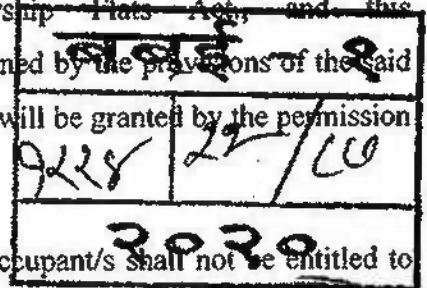 ership Flats Act., and this
बबई - १
ned by the provisions of the said
will be granted by the permission
१२२४ २२/८०
२०२०
ccupant/s shall not be entitled to